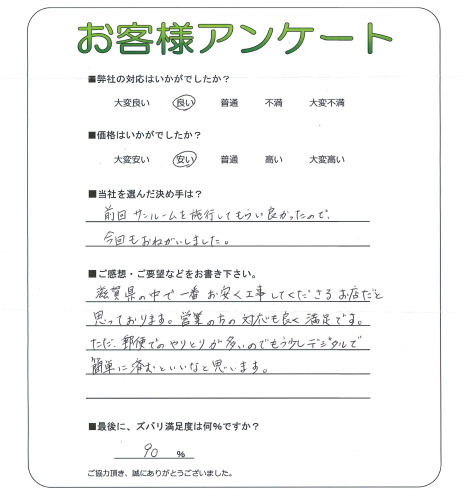 お客様アンケート
■弊社の対応はいかがでしたか？
大変良い 良い 普通 不満 大変不満
■価格はいかがでしたか？
大変安い 安い 普通 高い 大変高い
■当社を選んだ決め手は？
前回サンルームを施行してもらい良かったので、
今回もおねがいしました。
■ご感想・ご要望などをお書き下さい。
滋賀県の中で一番お安く工事してくださるお店だと
思っております。営業の方の対応も良く満足です。
ただ、郵便でのやりとりが多いのでもう少しデジタルで
簡単に済むといいなと思います。
■最後に、ズバリ満足度は何%ですか？
90 %
ご協力頂き、誠にありがとうございました。